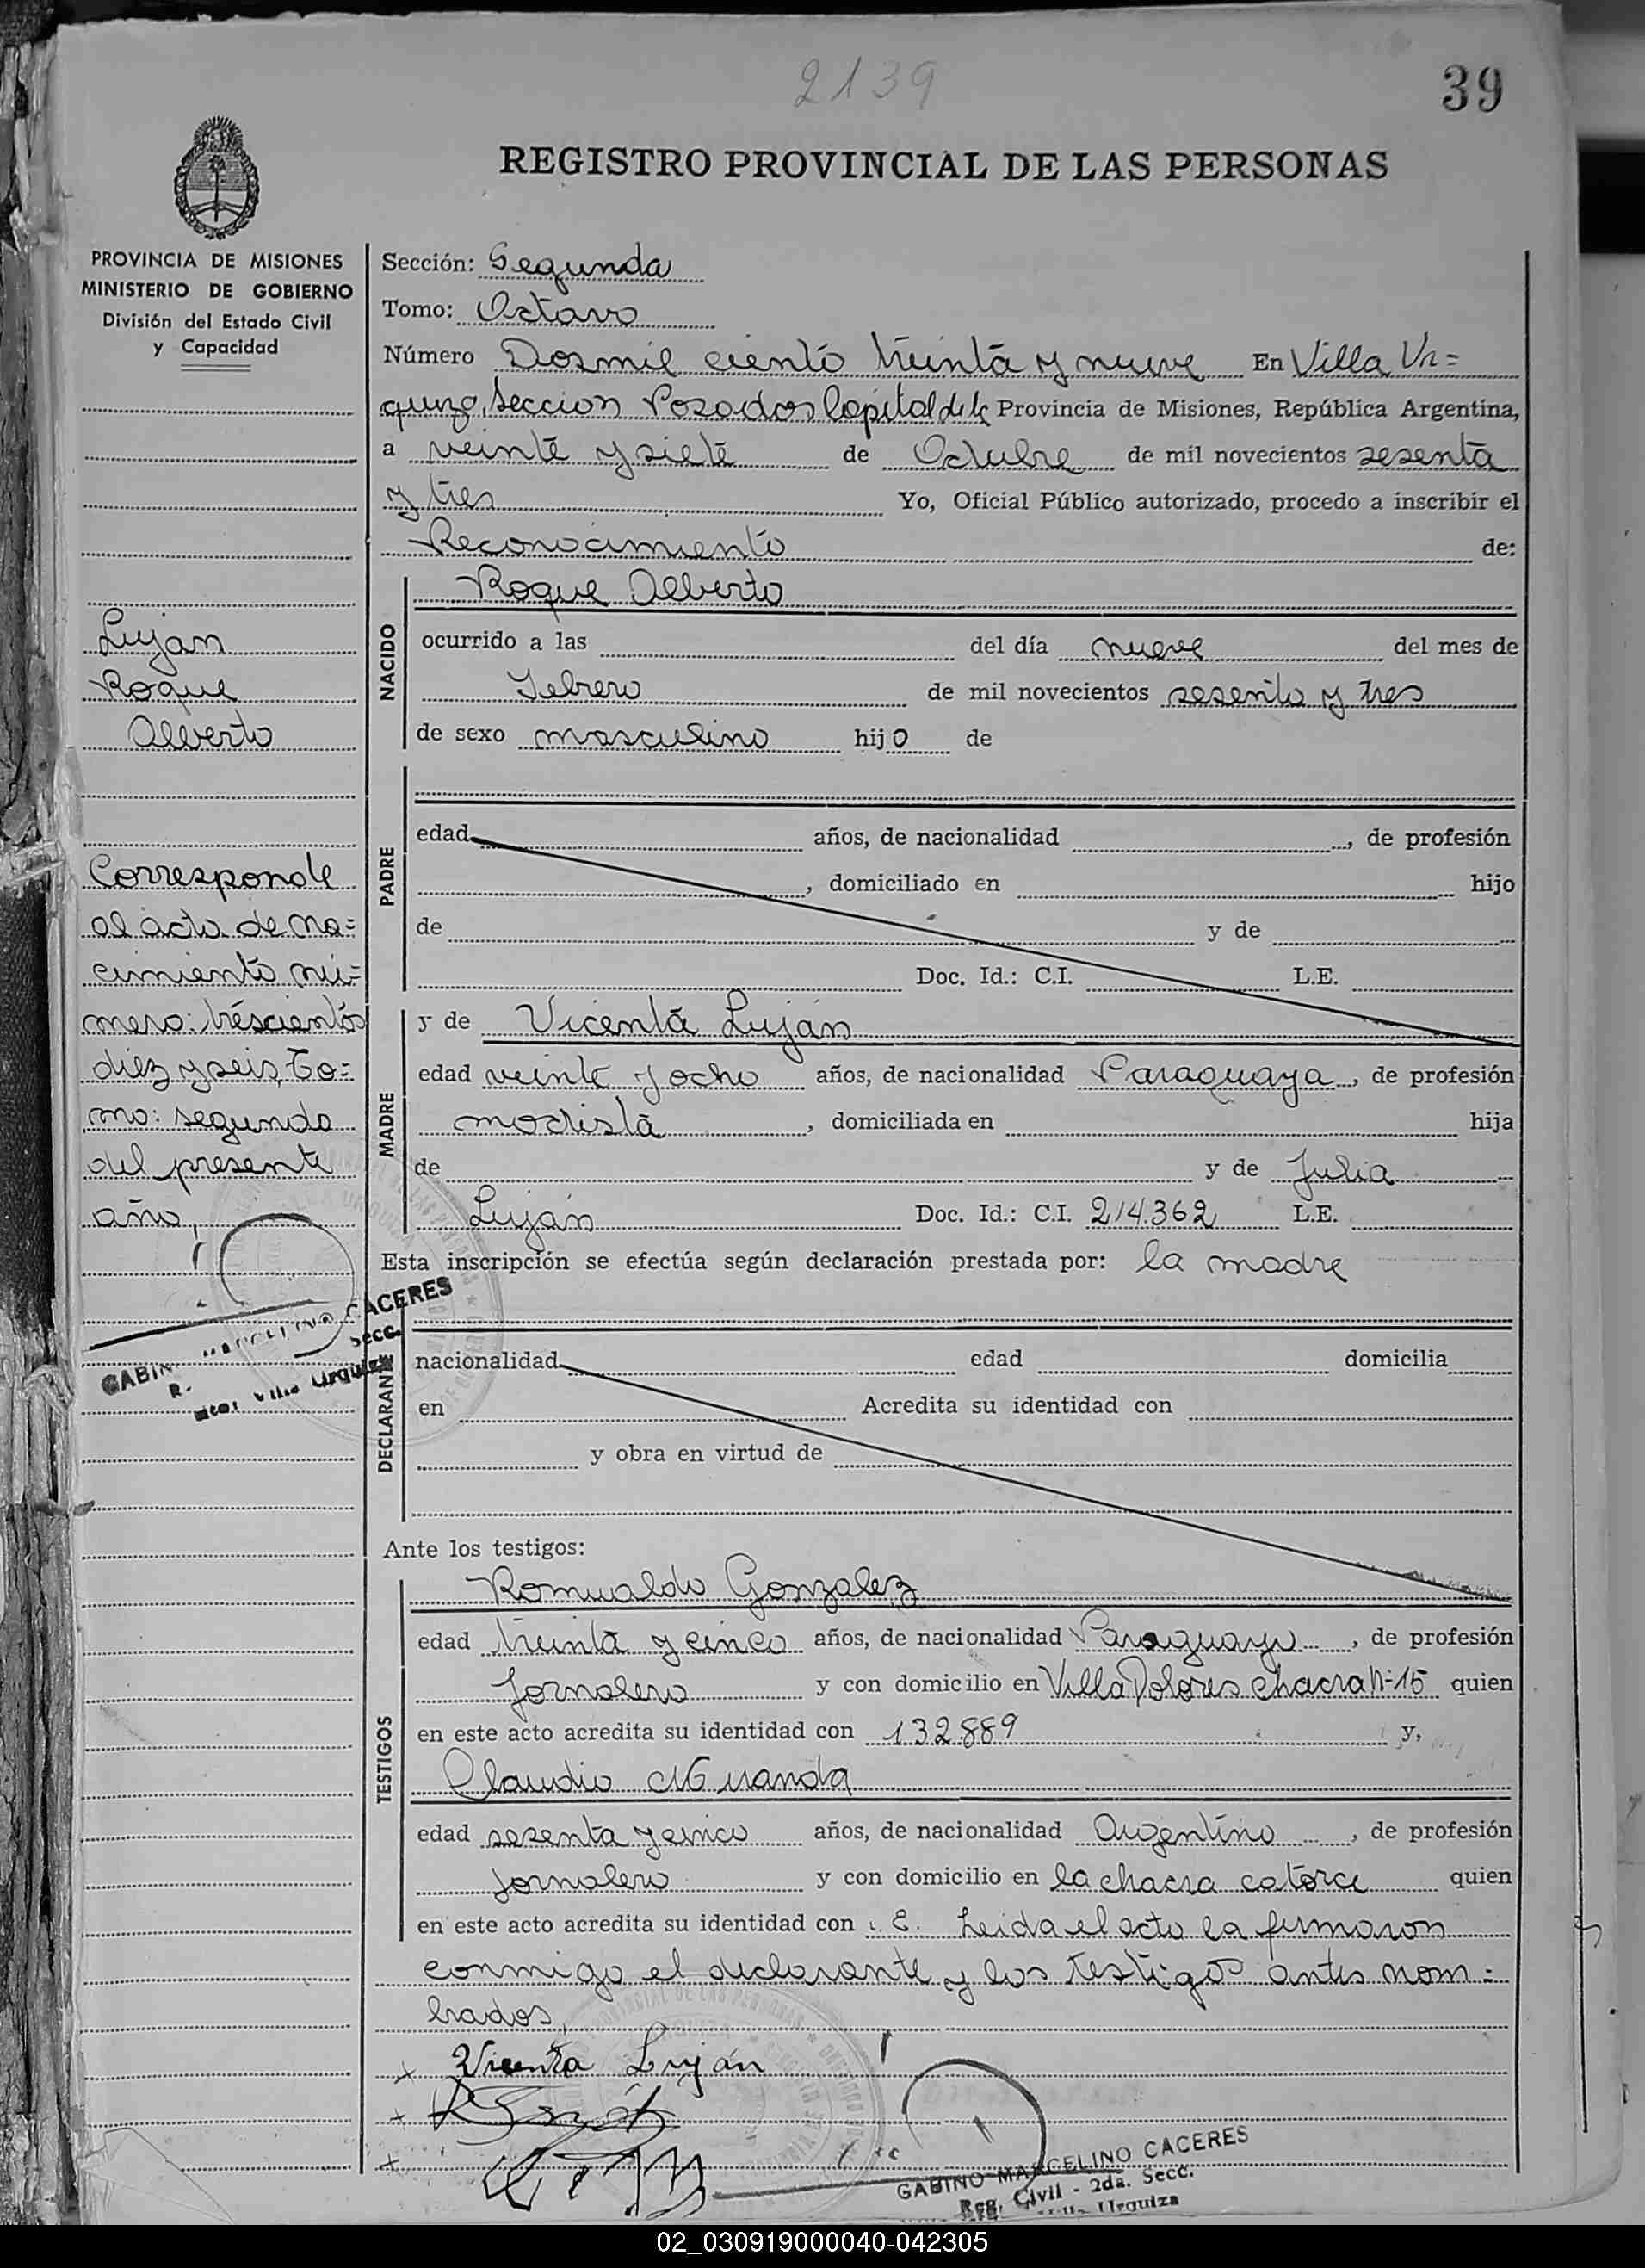 2139
39
REGISTRO PROVINCIAL DE LAS PERSONAS
PROVINCIA DE MISIONES
MINISTERIO DE GOBIERNO
División del Estado Civil
y Capacidad
Lujan
Roque
Alberto
Corresponde
al acta de na=
cimiento nú=
mero: trescientos
diez y seis, to=
mo: segundo
del presente
año,
CACERES
Secc.
Villa Urquiza
Sección: Segunda
Tomo: Octavo
Número Dosmil ciento treinta y nueve En Villa Ur=
quiza, Seccion Posadas Capital de la Provincia de Misiones, República Argentina,
a veinte y siete de Octubre de mil novecientos sesenta
y tres Yo, Oficial Público autorizado, procedo a inscribir el
Reconocimiento de:
NACIDO
Roque Alberto
ocurrido a las del día nueve del mes de
Febrero de mil novecientos sesenta y tres
de sexo masculino hijo de
PADRE
edad años, de nacionalidad , de profesión
, domiciliado en hijo
de y de
Doc. Id.: C.I. L.E.
MADRE
y de Vicenta Luján
edad veinte y ocho años, de nacionalidad Paraguaya, de profesión
modista, domiciliada en hija
de y de Julia
Luján Doc. Id.: C.I. 214.362 L.E.
Esta inscripción se efectúa según declaración prestada por: la madre
DECLARANTE
nacionalidad edad domicilia
en Acredita su identidad con
y obra en virtud de
Ante los testigos:
TESTIGOS
Romualdo Gonzalez
edad treinta y cinco años, de nacionalidad Paraguayo, de profesión
Jornalero y con domicilio en Villa Dolores chacra Nº 15 quien
en este acto acredita su identidad con 132.889 y,
Claudio Miranda
edad sesenta y cinco años, de nacionalidad Argentino, de profesión
jornalero y con domicilio en la chacra catorce quien
en este acto acredita su identidad con Leida el acta la firmaron
conmigo el declarante y los testigos antes nom=
brados,
x Vicenta Luján
x
x
GABINO MARCELINO CACERES
Reg. Civil - 2da. Secc.
Villa Urquiza
02_030919000040-042305